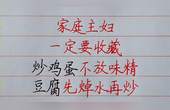 家庭主妇
一定要收藏
炒鸡蛋不放味精
豆腐先焯水再炒